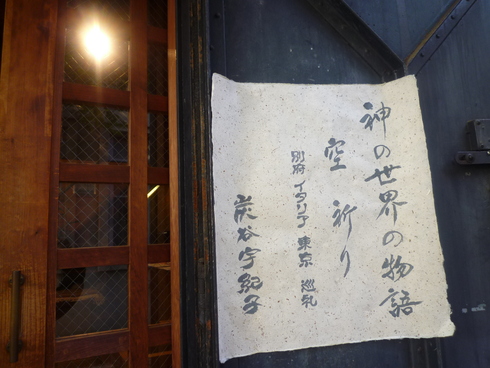 神の世界の物語
空 祈り
別府 イタリア 東京 巡礼
炭谷宇紀子